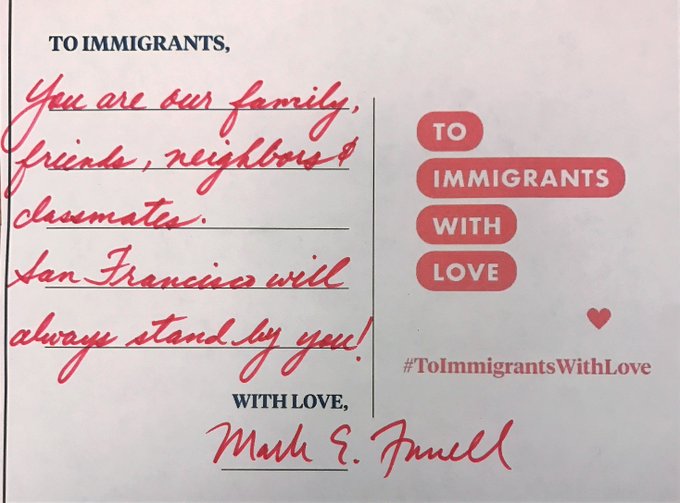 TO IMMIGRANTS,
You are our family,
friends, neighbors &
classmates.
San Francisco will
always stand by you!
WITH LOVE,
Mark E. Farrell
TO
IMMIGRANTS
WITH
LOVE
#ToImmigrantsWithLove